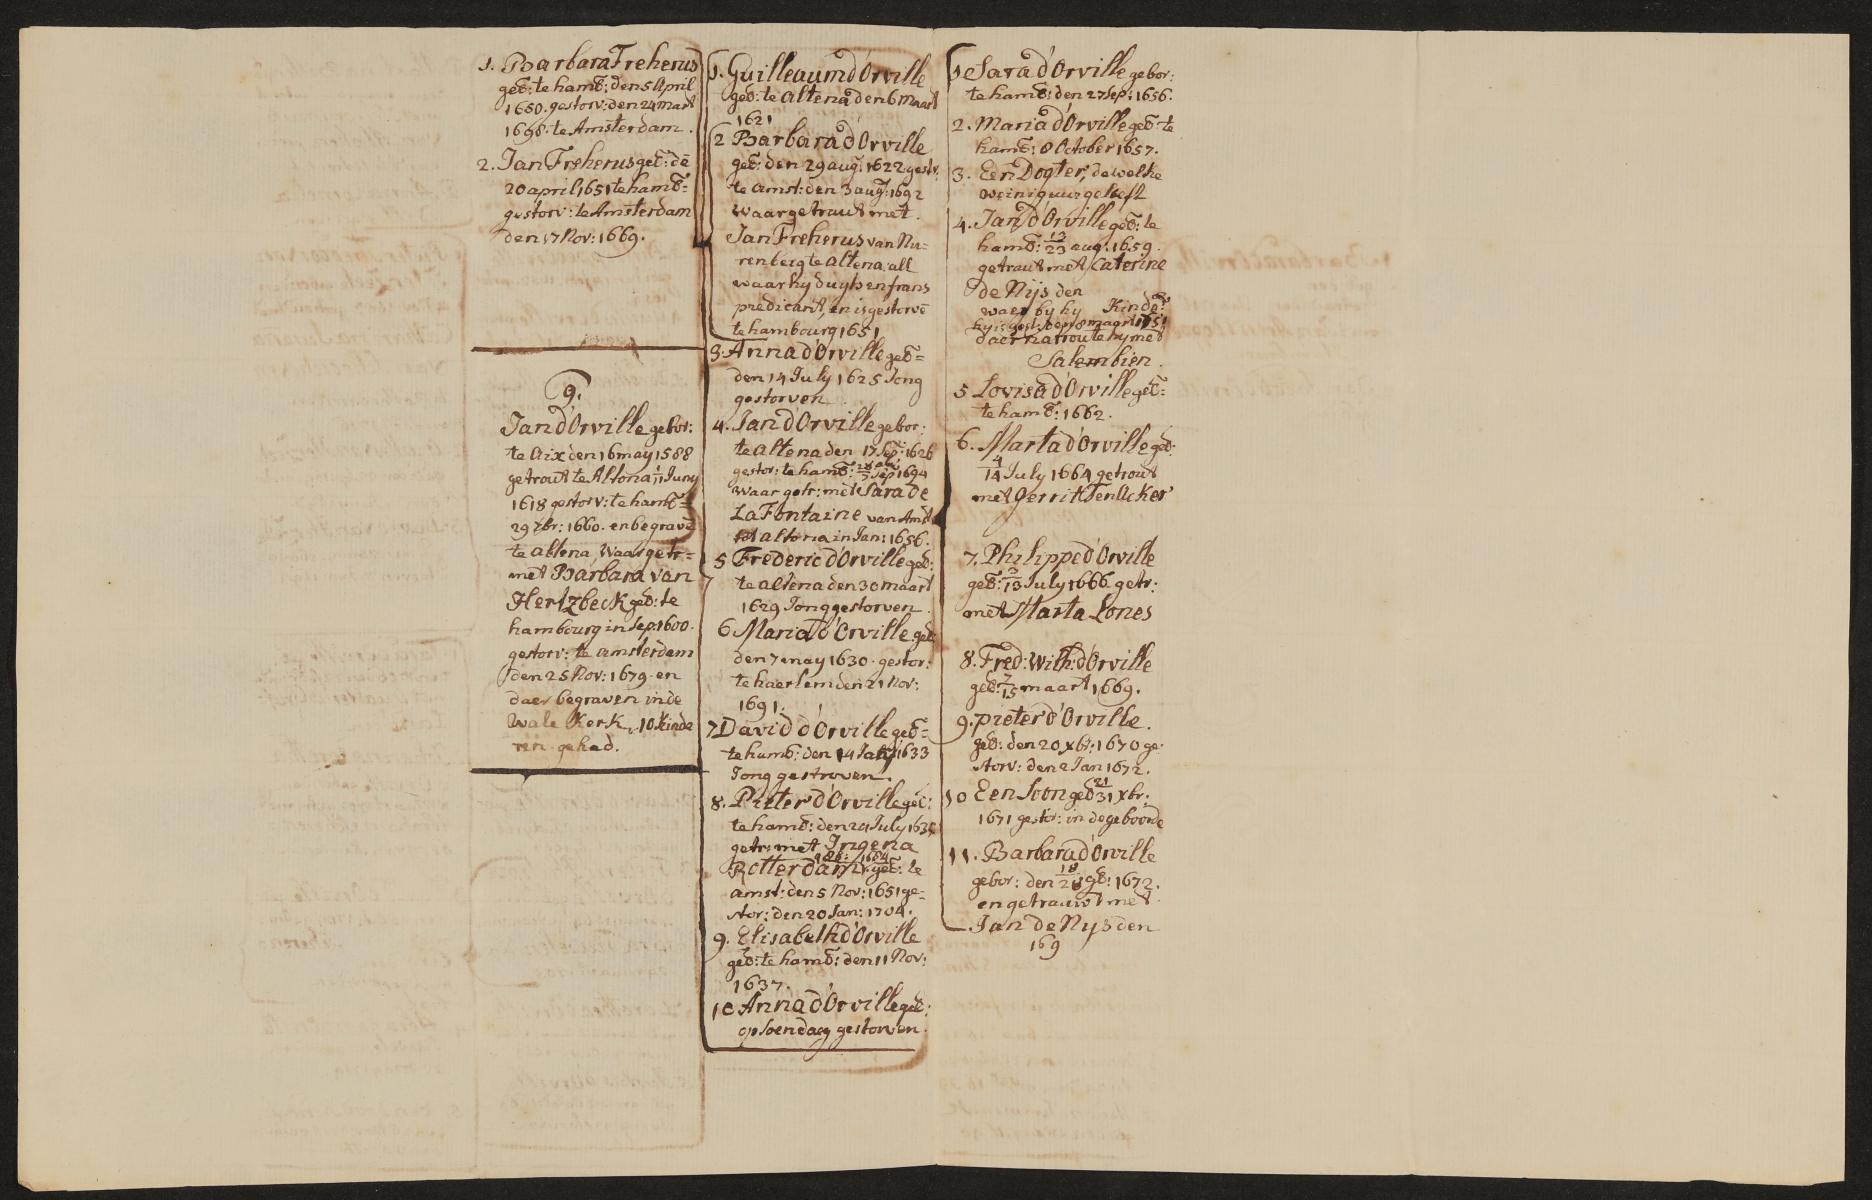 1. Barbara Freherus
geb: te hamb: den 5 April
1650. gestorv: den 24 mart
1698. te Amsterdam.
2. Jan Freherus geb: dē
20 april 1651 te hamb=
gestorv: te Amsterdam
den 17 Nov: 1669.
9.
Jan d'Orville gebor:
te Aix den 16 may 1588
getrout te Altona 1/11 Juny
1618 gestorv: te hamb=
29 7br: 1660. en begravē
te altena, waar getr=
met Barbara van
Hertzbeck geb: te
hambourg in Sep: 1600.
gestorv: te amsterdam
den 25 Nov: 1679. en
daer begraven in de
Wale Kerk, 10 kinde
ren gehad.
1. Guilleaum d'Orville
geb: te altena den 6 maart
1621
2 Barbara d'Orville
geb: den 29 aug: 1622 gestr:
te amst: den 3 aug: 1692
waar getraut met.
Jan Freherus van Nu-
renberg te altena, all
waar hy duyts en frans
predicant, en is gestorvē
te hambourg 1651
3. Anna d'Orville geb=
den 14 July 1625 Jong
gestorven.
4. Jan d'Orville gebor:
te altena den 17 Sep: 1626
gestor: te hamb: Sep 1694
waar getr: met Sara de
La Fontaine van Amst
tot altona in Jan: 1656.
5 Frederic d'Orville geb:
te altena den 30 maart
1629 Jong gestorven.
6 Maria d'Orville geb:
den 7 may 1630. gestor:
te haerlem den 21 Nov:
1691.
7 David d'Orville geb=
te hamb: den 14 July 1633
Jong gestroven.
8. Pieter d'Orville geb:
te hamb: den 24 July 1635
getr: met Ingena
Rotterdam geb: te
amst: den 5 Nov: 1651 ge-
stor: den 20 Jan: 1704.
9. Elisabeth d'Orville
geb: te hamb: den 11 Nov:
1637.
10 Anna d'Orville geb:
op soendag gestorven.
1. Sara d'Orville gebor:
te hamb: den 27 Sep: 1656.
2. Maria d'Orville geb: te
hamb: 8 October 1657.
3. Een Dogter, de welke
weinig uur geleeft
4. Jan d'Orville geb: te
hamb: 13/23 aug: 1659.
getraut met Caterine
de Nijs den
waer by hy Kinder
hy is gest: den 8 maart
daer na troute hy met
Salembien.
5 Lovisa d'Orville geb=
te hamb: 1662.
6. Marta d'Orville geb:
4/14 July 1664 getrout
met Gerrit Ten Acker
7. Philippe d'Orville
geb: 3/13 July 1666. getr:
met Marta Lones
8. Fred: Wilh: d'Orville
geb: 7/15 maart 1669.
9. pieter d'Orville.
geb: den 20 xbr: 1670 ge-
storv: den 2 Jan 1672.
10 Een Soon geb 21/31 xbr:
1671 gestor: in de geboorde
11. Barbara d'Orville
gebor: den 18/28 9b: 1672.
en getrauwt met
Jan de Nys den
169